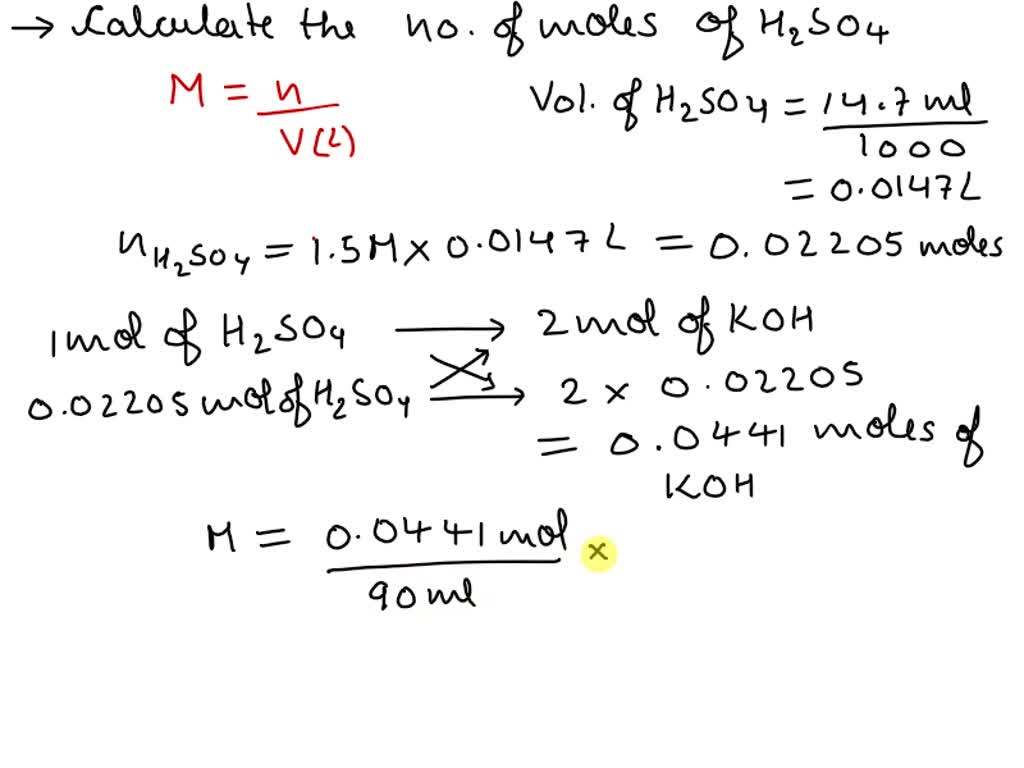 → Calculate the no. of moles of H₂SO₄
M = n / V(L)
Vol. of H₂SO₄ = 14.7 ml / 1000
= 0.0147 L
nH₂SO₄ = 1.5M × 0.0147 L = 0.02205 moles
1 mol of H₂SO₄ → 2 mol of KOH
0.02205 mol of H₂SO₄ → 2 × 0.02205
= 0.0441 moles of
KOH
M = 0.0441 mol / 90 ml ×